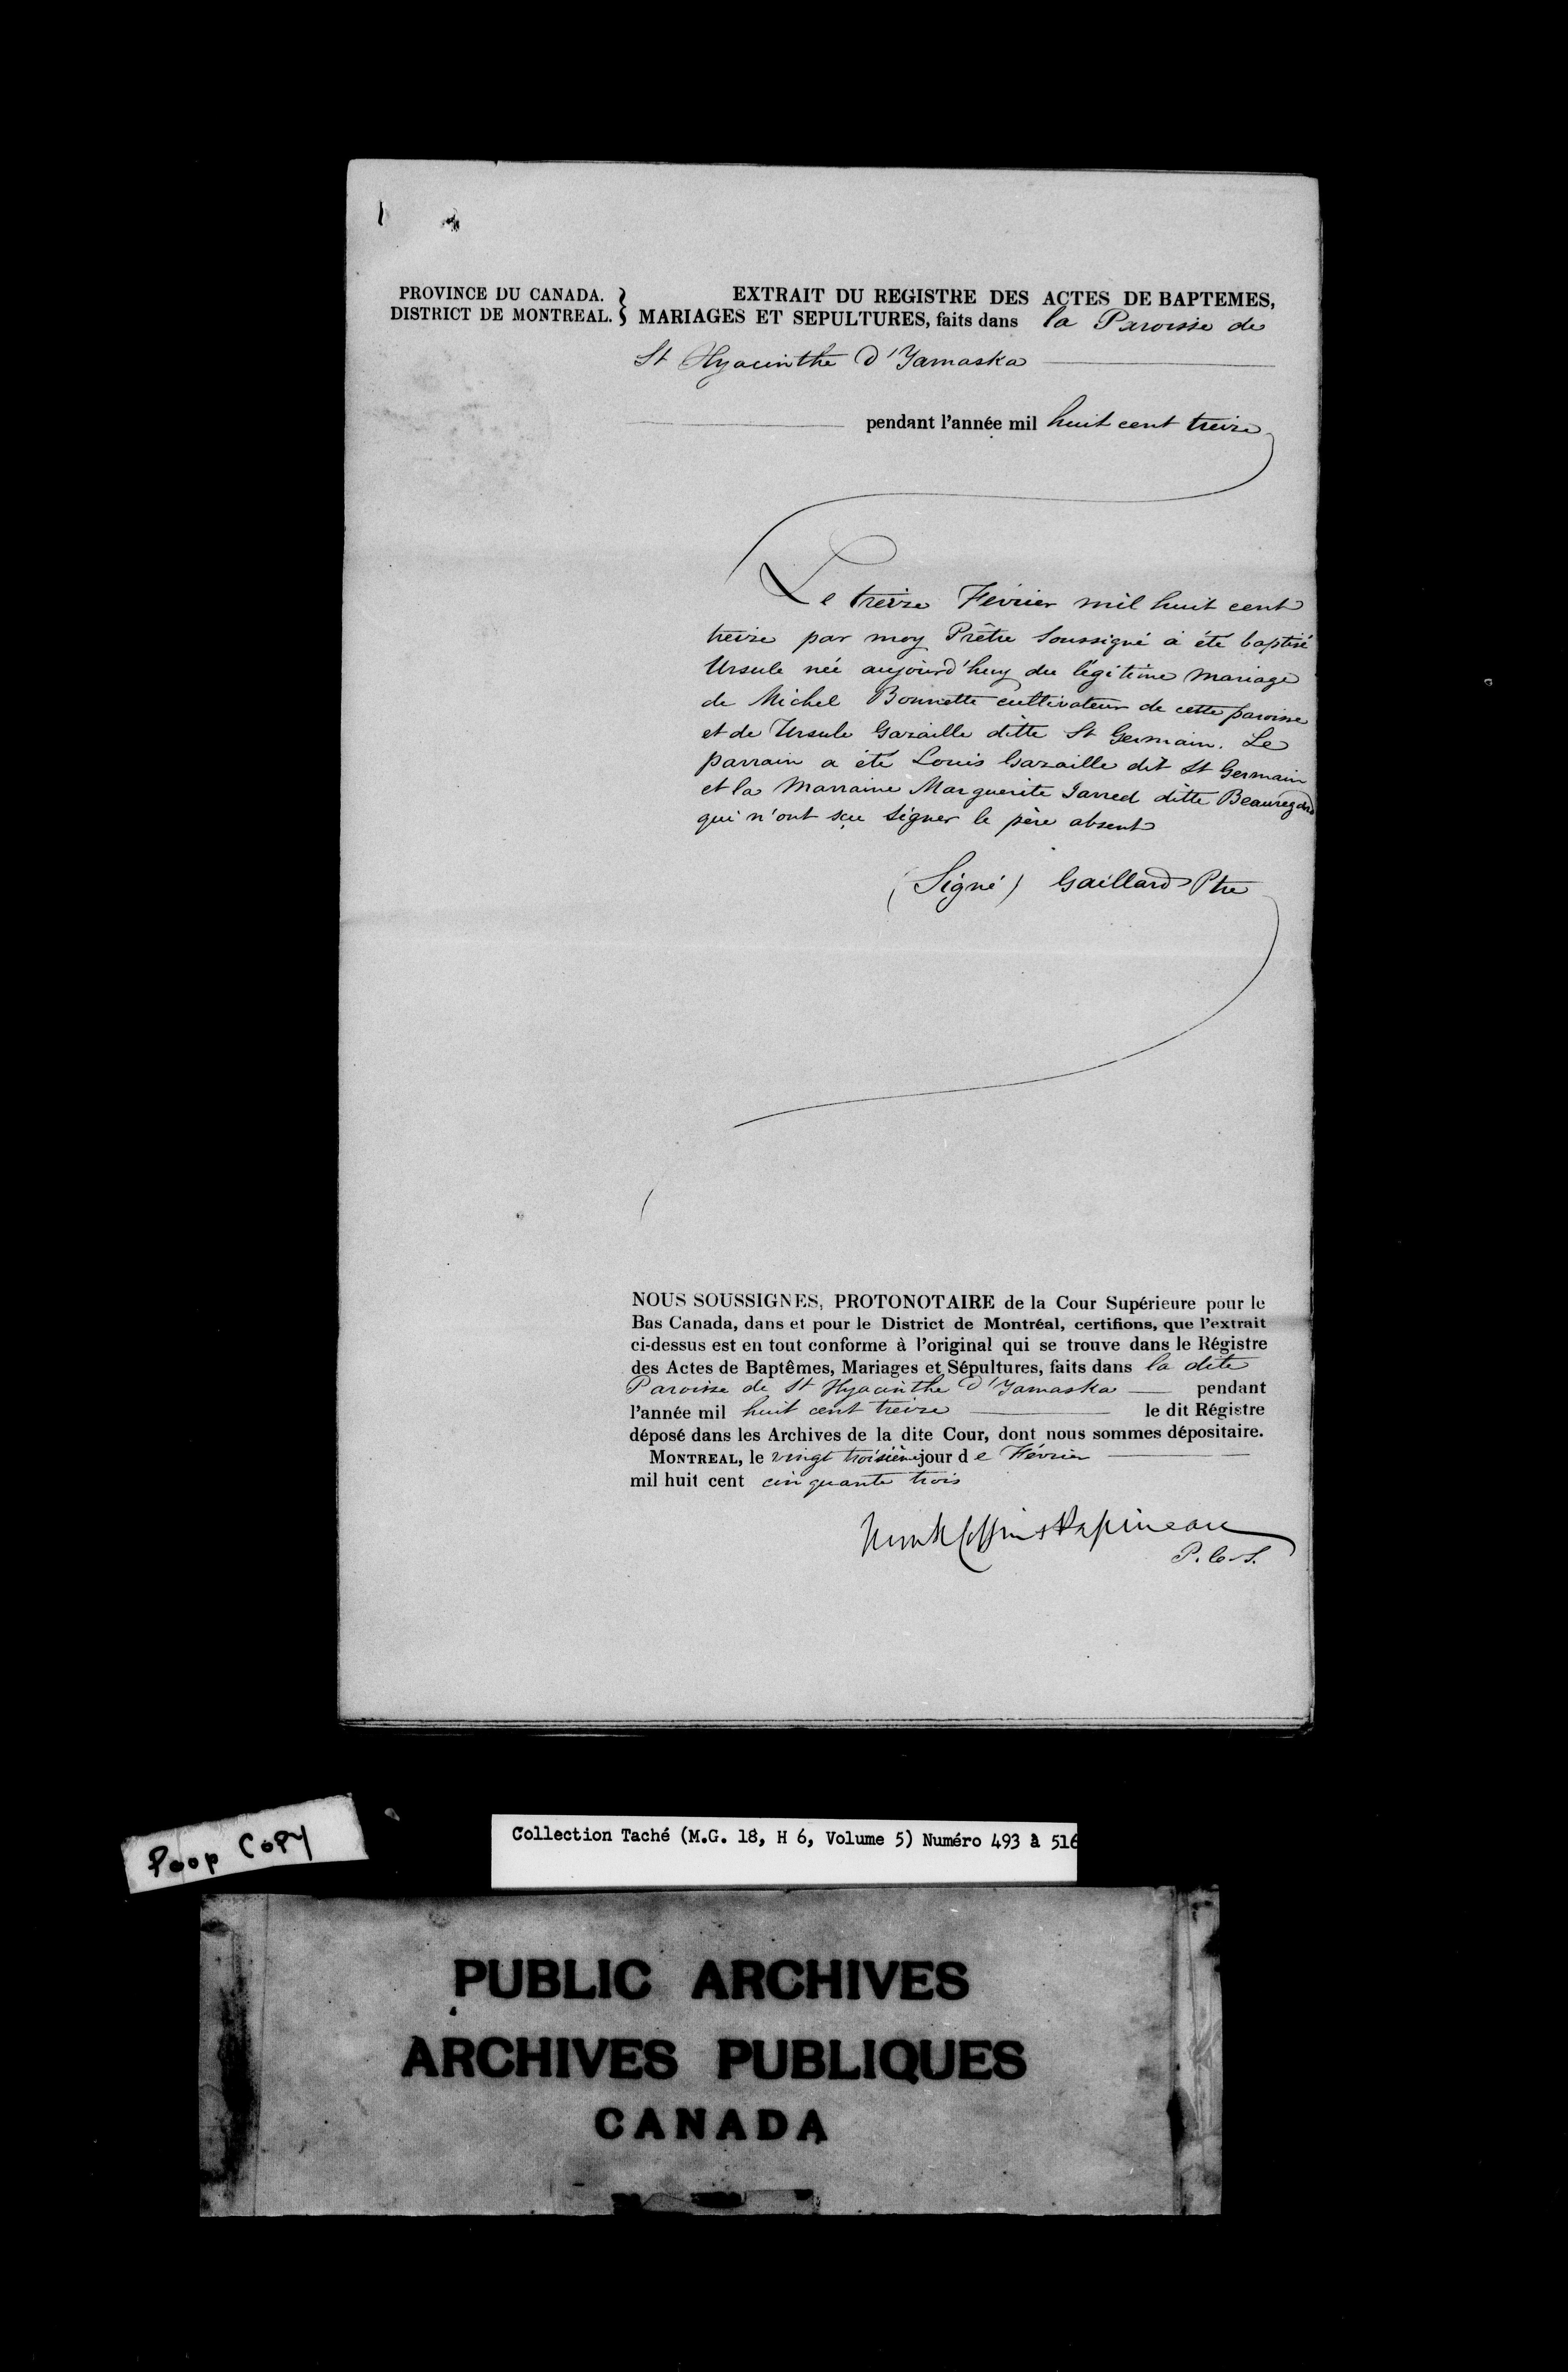 PROVINCE DU CANADA.
DISTRICT DE MONTREAL.
EXTRAIT DU REGISTRE DES ACTES DE BAPTEMES,
MARIAGES ET SEPULTURES, faits dans la Paroisse de
St Hyacinthe d'Yamaska
pendant l'année mil huit cent treize
Le treize Février mil huit cent
treize par moy Prêtre Soussigné a été baptisé
Ursule née aujourd'huy du légitime mariage
de Michel Bonnette cultivateur de cette paroisse
et de Ursule Gazaille ditte St Germain. Le
parrain a été Louis Gazaille dit St Germain
et la Marraine Marguerite Jarred ditte Beauregard
qui n'ont sçu signer le père absent
(Signé) Gaillard Ptre
NOUS SOUSSIGNES, PROTONOTAIRE de la Cour Supérieure pour le
Bas Canada, dans et pour le District de Montréal, certifions, que l'extrait
ci-dessus est en tout conforme à l'original qui se trouve dans le Régistre
des Actes de Baptêmes, Mariages et Sépultures, faits dans la dite
Paroisse de St Hyacinthe d'Yamaska pendant
l'année mil huit cent treize le dit Régistre
déposé dans les Archives de la dite Cour, dont nous sommes dépositaire.
MONTREAL, le vingt troisième jour de Février
mil huit cent cinquante trois
Monk Coffin & Papineau
P.C.S.
Poop COPY
Collection Taché (M.G. 18, H 6, Volume 5) Numéro 493 à 516
PUBLIC ARCHIVES
ARCHIVES PUBLIQUES
CANADA